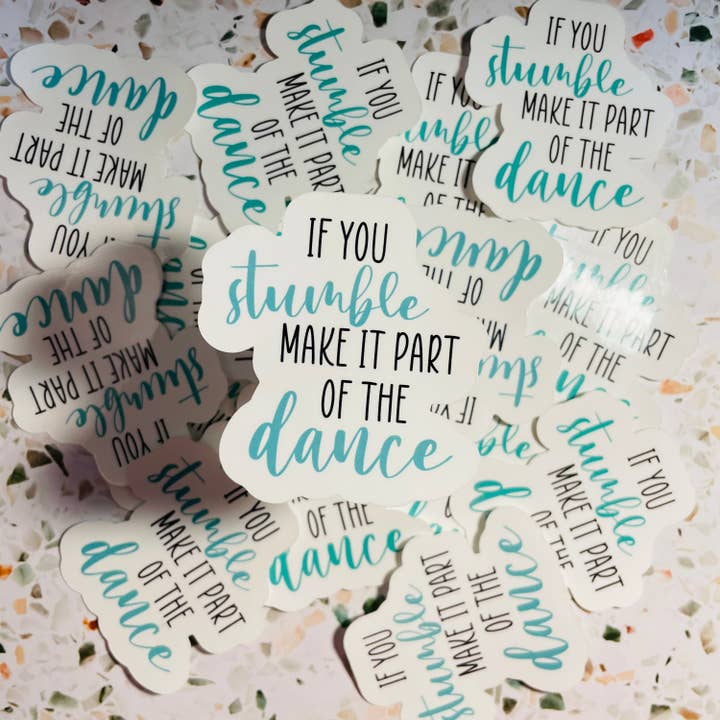 IF YOU
stumble
MAKE IT PART
OF THE
dance
IF YOU
stumble
MAKE IT PART
OF THE
dance
IF YOU
stumble
MAKE IT PART
OF THE
dance
IF YOU
MAKE IT
OF THE
IF YOU
stumble
MAKE IT PART
OF THE
dance
dance
OF THE
IF YOU
stumble
MAKE IT PART
OF THE
IF YOU
stumble
MAKE IT PART
OF THE
dance
IF YOU
stumble
MAKE IT PART
OF THE
dance
OF THE
dance
IF YOU
stumble
MAKE IT PART
OF THE
dance
IF YOU
stumble
MAKE IT PART
OF THE